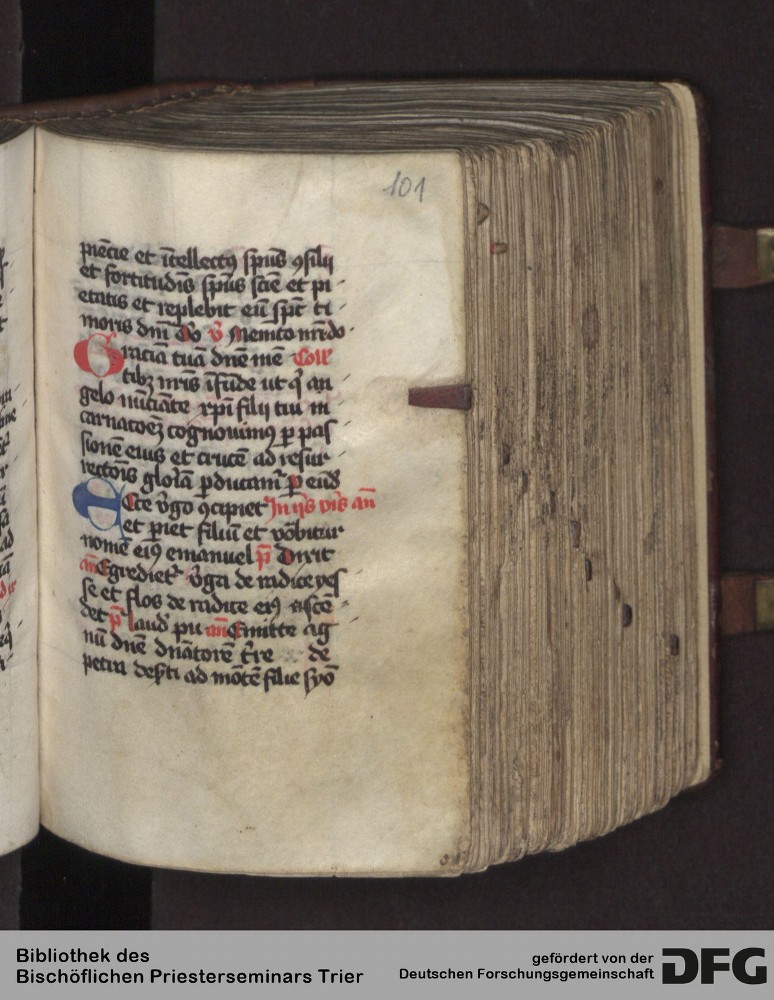 101
piẽcie et ĩtellectꝰ spũs ꝯsilij
et fortitudĩs spũs sciẽ et pi
etatis et replebit eũ spũs ti
moris dnĩ Do v̄ Memto nr̃i do
Graciã tuã dnẽ mẽ Coll'
tibꝫ nrĩs ĩfũde ut q̃ an
gelo nũciãte xp̃i filij tui ĩn
carnacoẽꝫ cognouimꝰ ꝑ pas
sionẽ eius et crucẽ ad resur
rectois glorã ꝑducam̃ ꝑ eũd
Ecce v̄go ꝯcipiet In ijs vĩs an̄
et ꝑiet filiũ et võbitur
nomẽ eiꝰ emanuel p̄ Dixit
an̄ Egrediet̃ v̄ga de radice yes
se et flos de radice eiꝰ ascẽ
det p̄ laud' pu an̄ Emitte ag
nũ dnẽ dnãtorẽ t̃re de
petra des̃ti ad mõtẽ filie syõ
Bibliothek des
Bischöflichen Priesterseminars Trier
gefördert von der
Deutschen Forschungsgemeinschaft
DFG